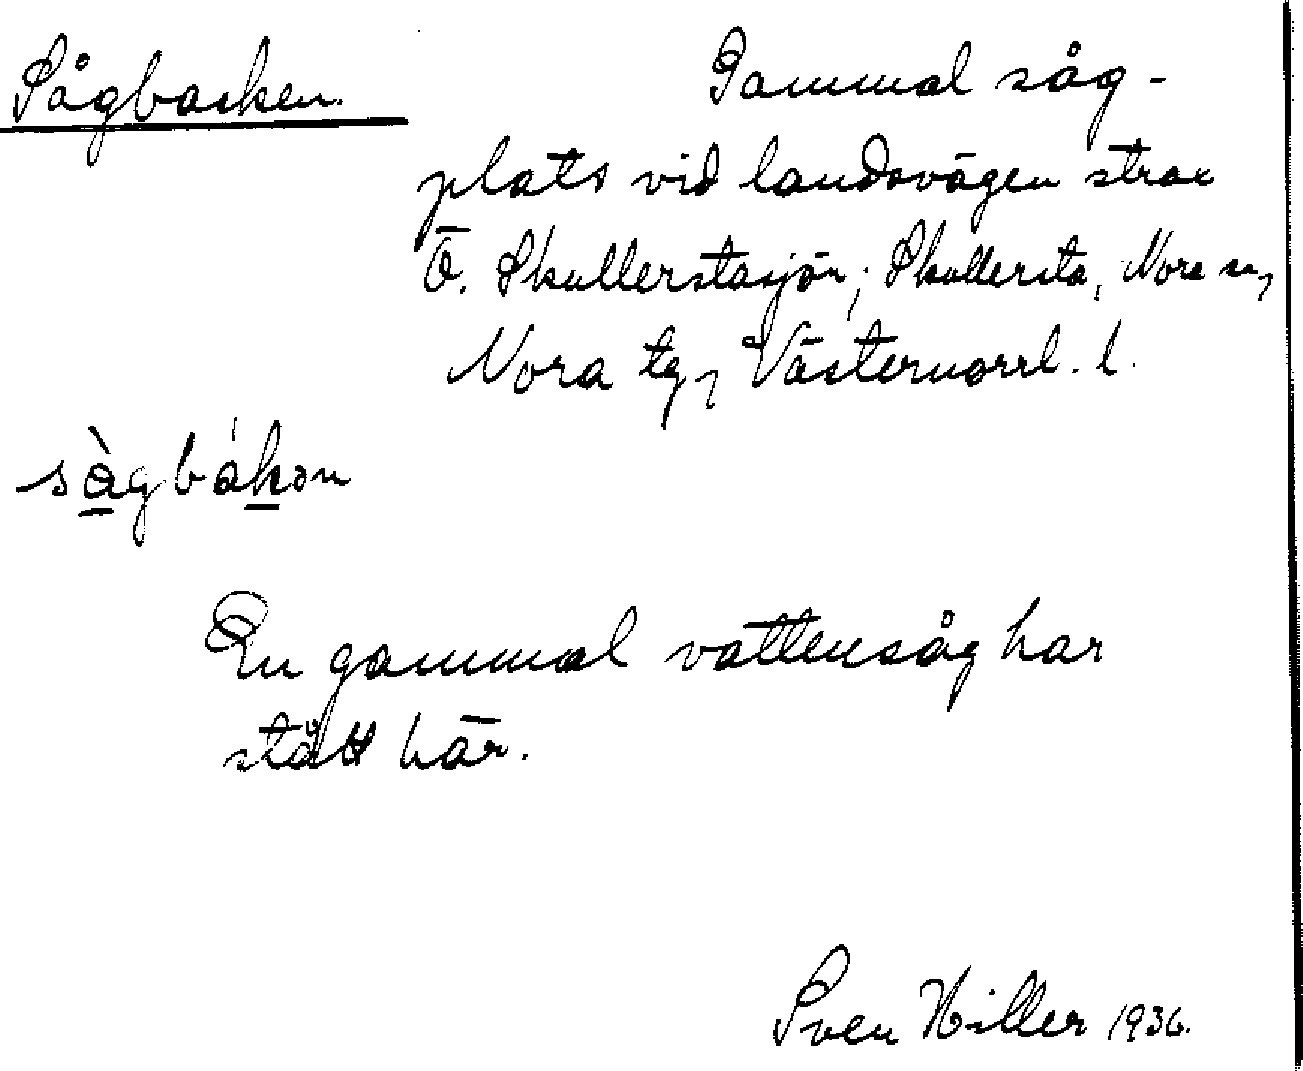 Sågbacken.
Gammal såg-
plats vid landsvägen strax
Ö. Skullerstasjön; Skullersta, Nora sn,
Nora tg, Västernorrl. l.
sågbákən
En gammal vattensåg har
stått här.
Sven Hiller 1936.